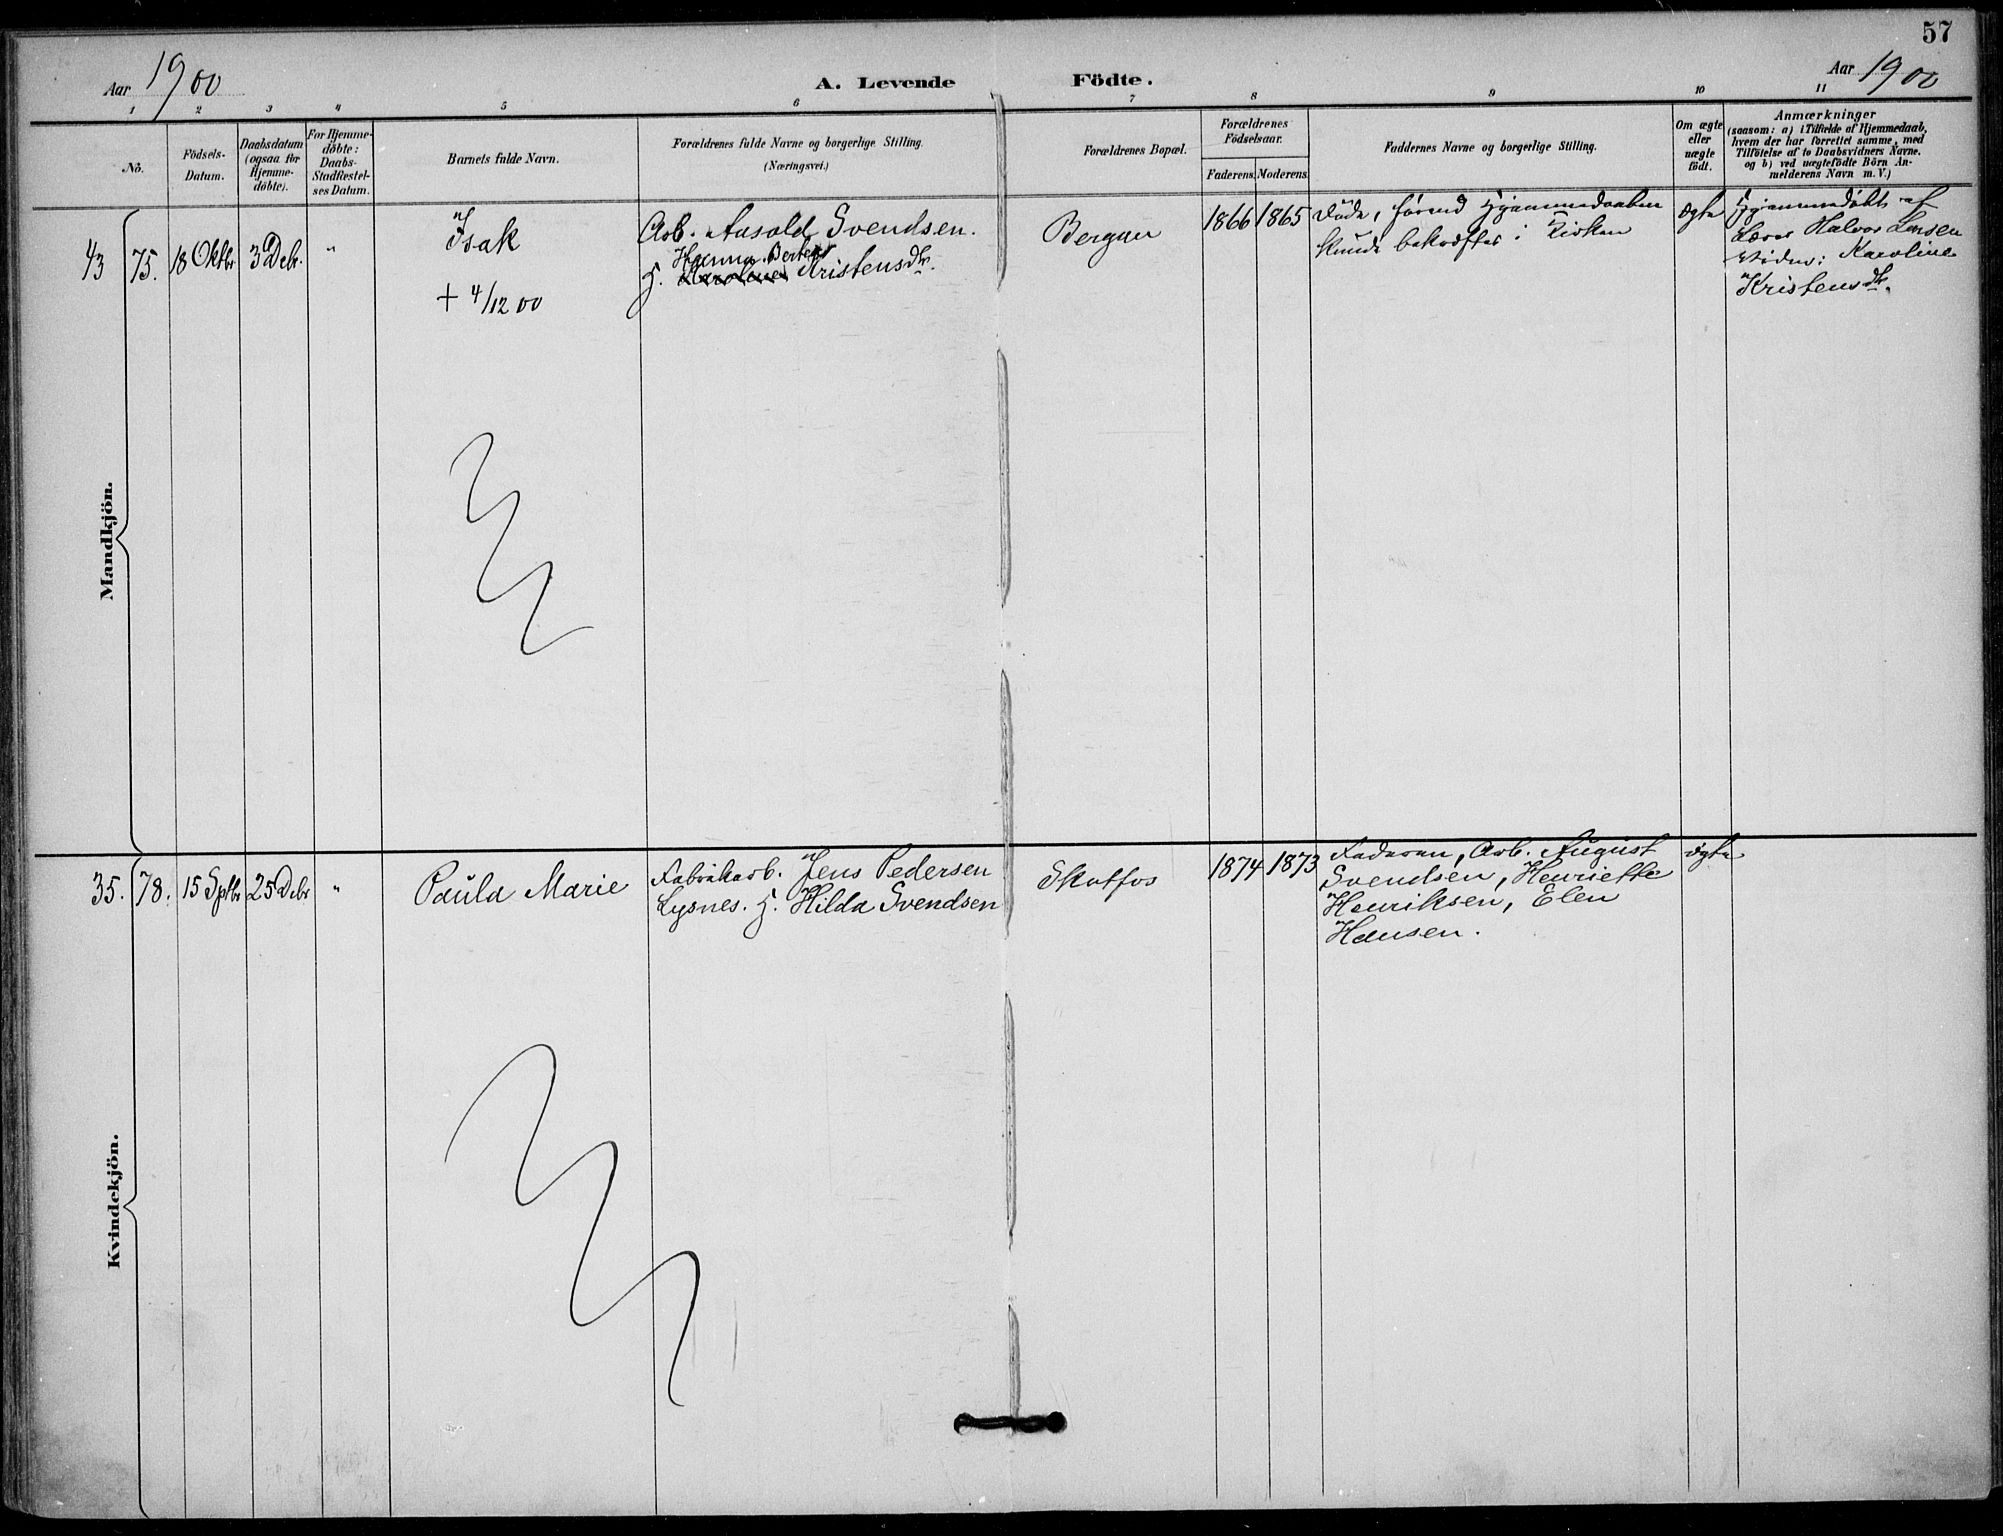 57
Aar 1900
A. Levende Födte.
Aar 1900
1 2 3 4 5 6 7 8 9 10 11
No.
Födsels-
Datum.
Daabsdatum
(ogsaa for
Hjemme-
döbte).
For Hjemme-
döbte:
Daabs-
Stadfæstel-
ses Datum.
Barnets fulde Navn.
Forældrenes fulde Navne og borgerlige Stilling.
(Næringsvei.)
Forældrenes Bopæl.
Forældrenes
Födselsaar.
Faderens. Moderens.
Faddernes Navne og borgerlige Stilling.
Om ægte
eller
uægte
födt.
Anmærkninger
(saasom: a) i Tilfælde af Hjemmedaab,
hvem der har forrettet samme, med
Tilföielse af to Daabsvidners Navne.
og b) ved uægtefödte Börn An-
melderens Navn m. V.)
Mandkjön.
43 75. 18 Oktbr 3 Debr. "
Isak
+ 4/12 00
Arb. Aasold Svendsen.
Hanna Berthe
H. Karoline Kristensdtr.
Bergan
1866 1865
Döde, førend Hjemmedaaben
kunde bekræftes i Kirken
ægte
Hjemmedøbt af
Lærer Halvor Lensen
Vidne: Karoline
Kristensdtr.
Kvindekjön.
35. 78. 15 Sptbr 25 Debr "
Paula Marie
Fabrikarb. Jens Pedersen
Lysnes. H. Hilda Svendsen
Skotfos
1874 1873
Faderen, Arb. August
Svendsen, Henriette
Henriksen, Elen
Hansen.
ægte